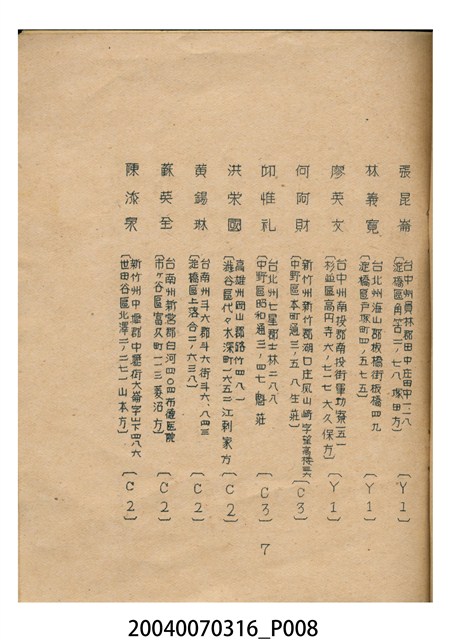 張昆崙
台中州員林郡田中庄田中一二八
淀橋區角筈二ノ七八塚田方
〔Y1〕
林義寬
台北州海山郡板橋街板橋四九
淀橋區戸塚町四ノ五七五
〔Y1〕
廖英友
台中州南投郡南投街軍功寮一五一
杉並區高円寺六ノ七一七大久保方
〔Y1〕
何阿財
新竹州新竹郡湖口庄鳳山崎字
中野區本町通三ノ五八生莊
〔C3〕
邱惟礼
台北州七星郡士林二八八
中野區昭和通三ノ四七 莊
〔C3〕
洪榮國
高雄州岡山郡路竹四八一
澁谷區代々木深町一六五二江刺家方
〔C2〕
黄錫琳
台南州斗六郡斗六街斗六ノ八四三
淀橋區上落合二ノ六三八
〔C2〕
蘇英全
台南州新營郡白河四〇四布德医院
市ヶ谷區富久町一一三菱沼方
〔C2〕
陳添泉
新竹州中壢郡中壢街大崙字山下四八六
世田谷區北澤二ノ二七一山本方
〔C2〕
7
20040070316_P008